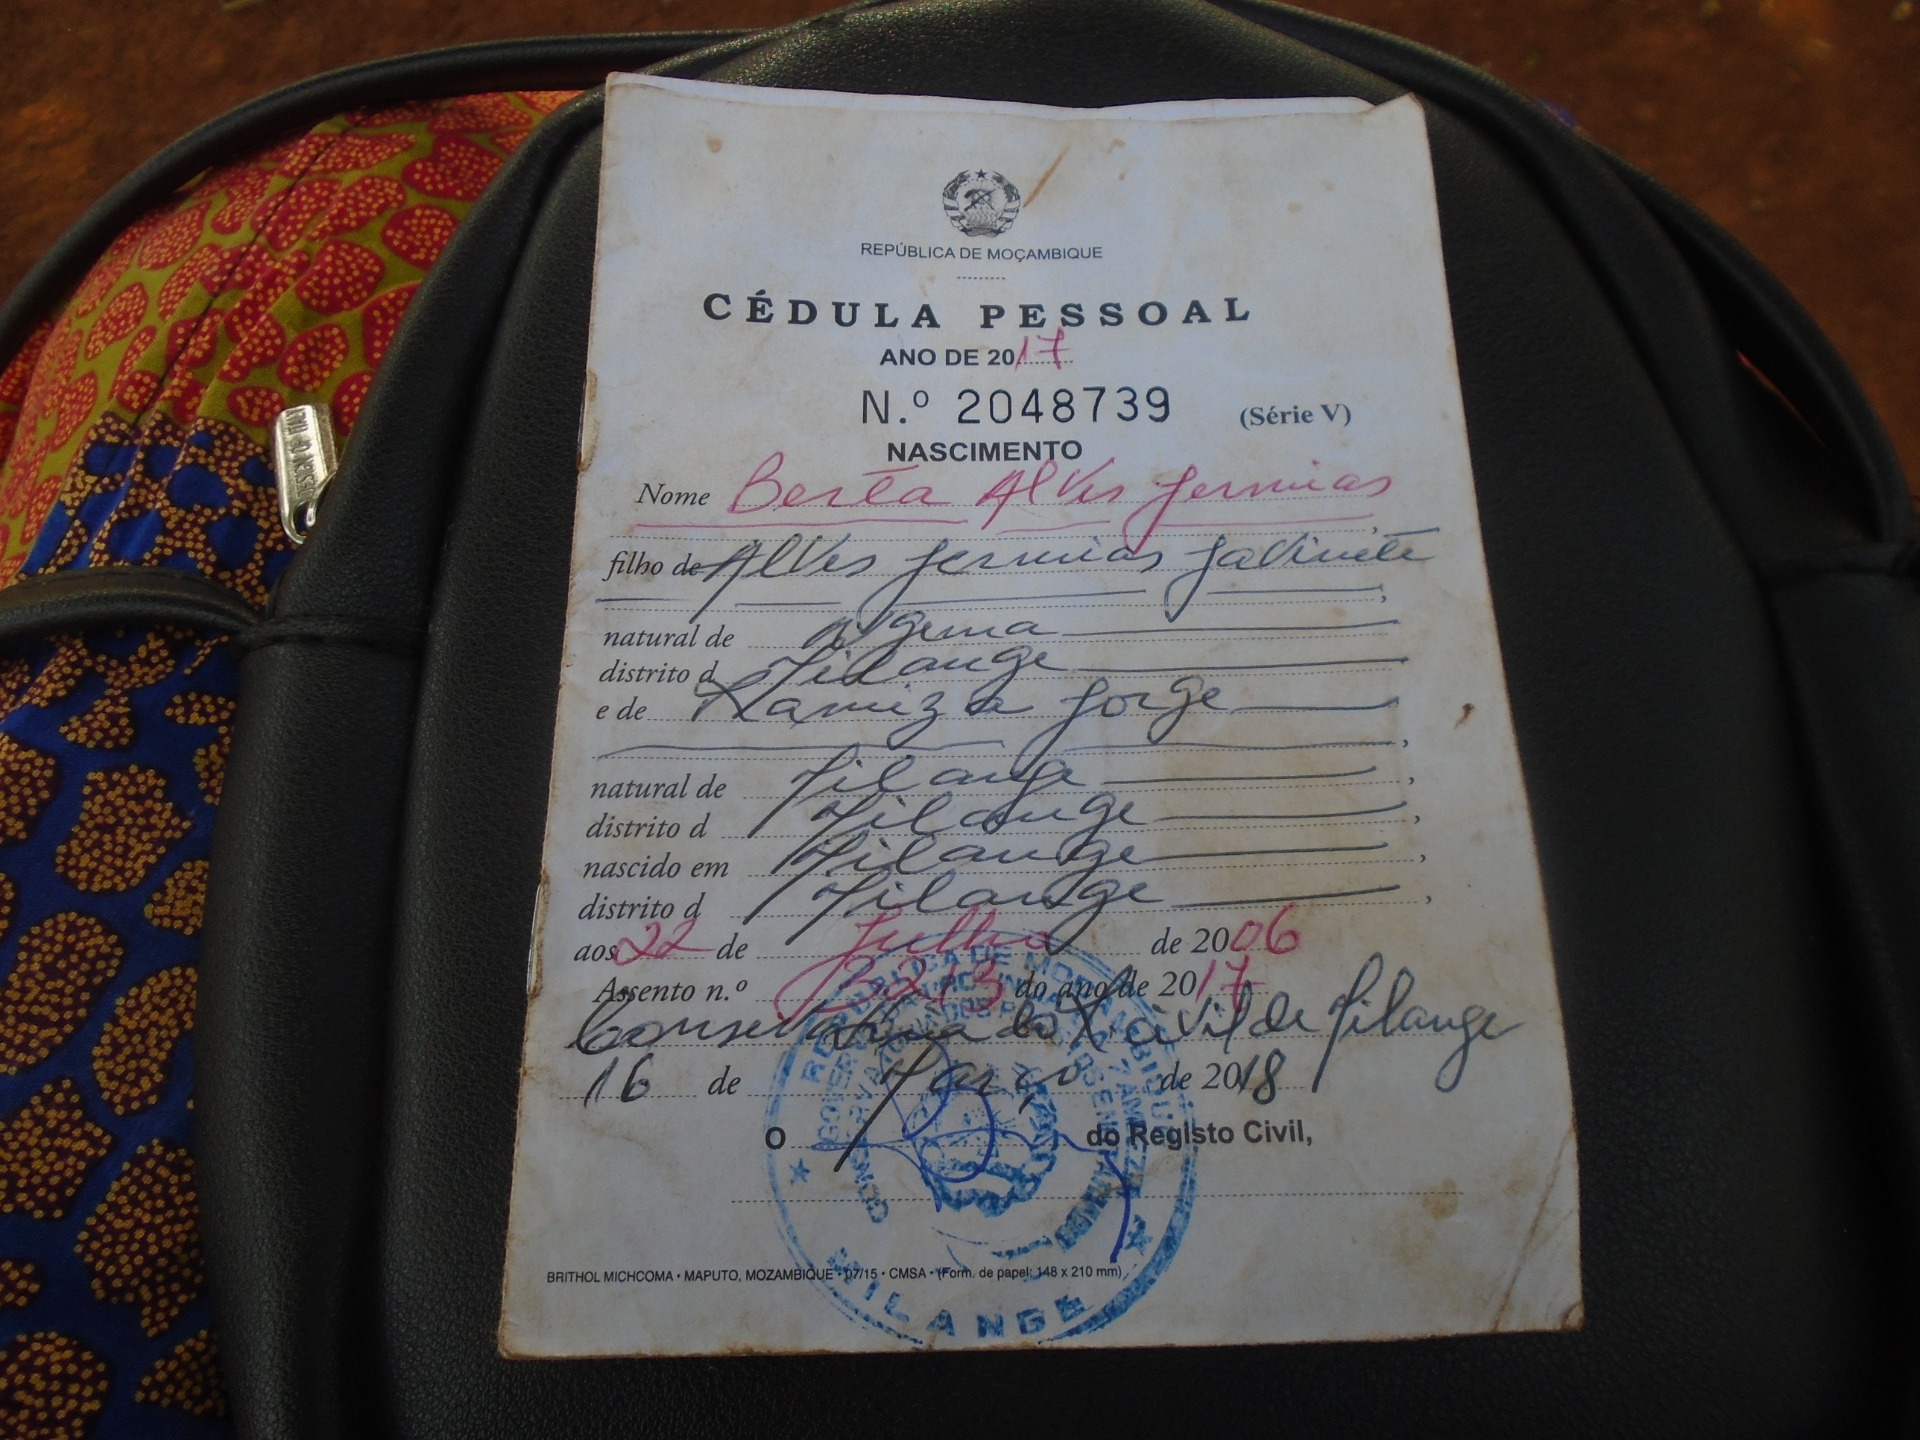 REPÚBLICA DE MOÇAMBIQUE
CÉDULA PESSOAL
ANO DE 2017
N.º 2048739 (Série V)
NASCIMENTO
Nome Berta Alves Jermias
filho de Alves Jermias
natural de
distrito d Milange
e de Ramiza Jorge
natural de Milange
distrito d Milange
nascido em Milange
distrito d Milange
aos 22 de Julho de 2006
Assento n.º 3213 do ano de 2017
Conservatória do R. Civil de Milange
16 de Março de 2018
O do Registo Civil,
BRITHOL MICHCOMA • MAPUTO, MOZAMBIQUE • 07/15 • CMSA • (Form. de papel: 148 x 210 mm)
REPÚBLICA DE MOÇAMBIQUE
MILANGE